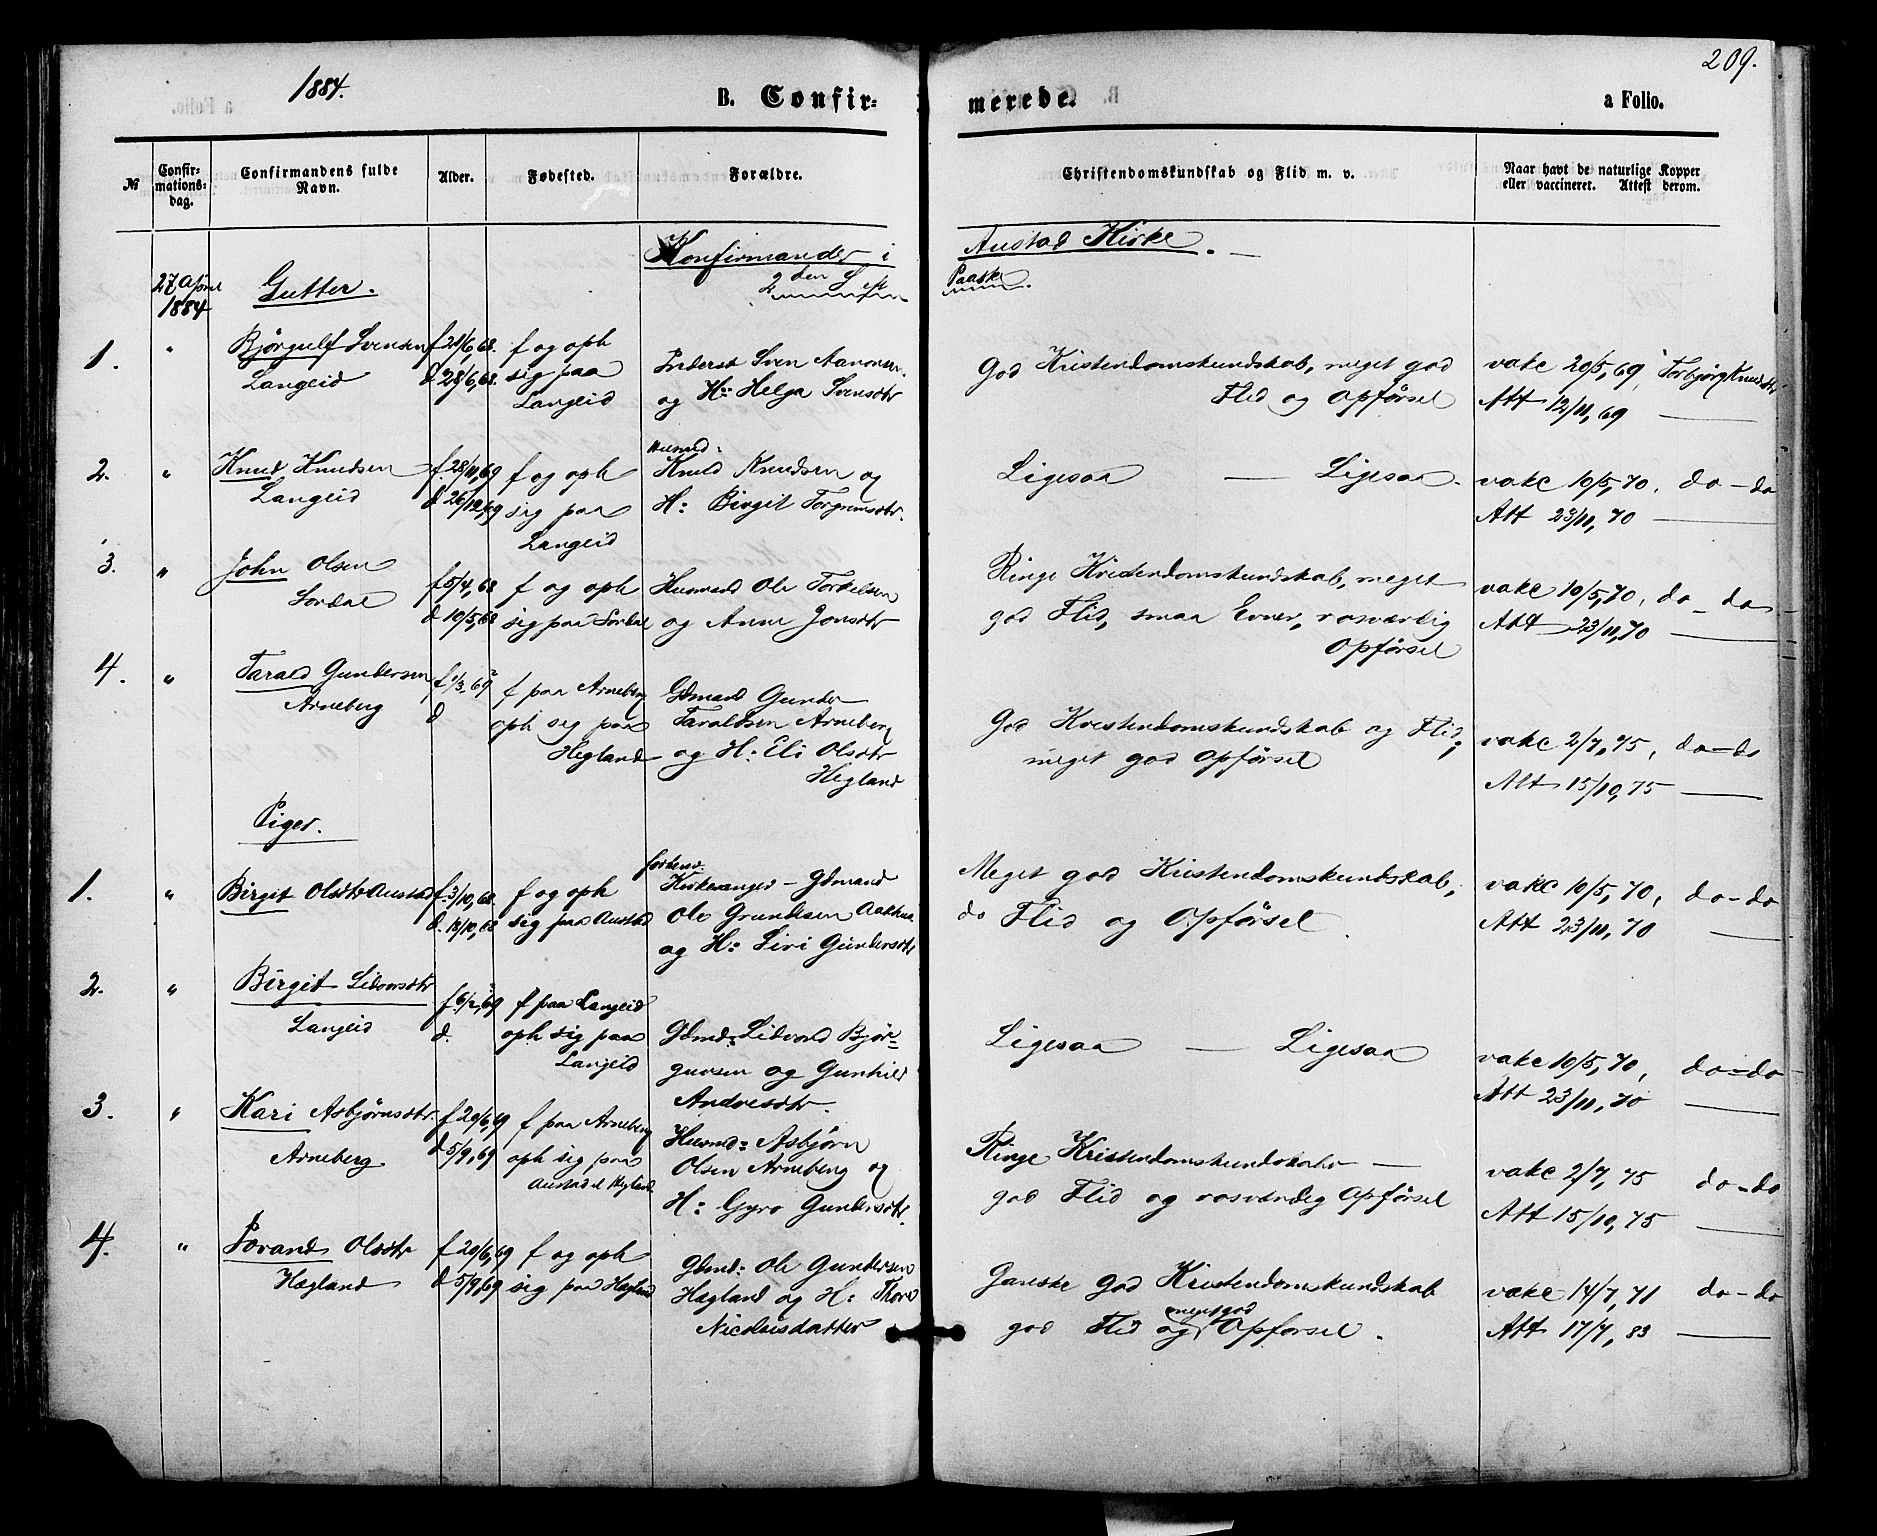 1884.
B. Confir-
merede.
a Folio.
209.
№
Confir-
mations-
dag.
Confirmandens fulde
Navn.
Alder.
Fødested.
Forældre.
Christendomskundskab og Flid m. v.
Naar havt de naturlige Kopper
eller vaccineret. Attest derom.
Konfirmander i Austad Kirke.
2den S. eft Paaske.
27 April
1884
Gutter.
1. " Bjørgulf Svensen
Langeid
f 21/6,68.
d 28/6,68.
f og oph
sig paa
Langeid
Inderst Sven Aanonsen
og H: Helga Svensdtr
God Kristendomskundskab, meget god
Flid og Opførsel
vakc 20/5,69, Torbjørg Knudsdtr
Att 12/11,69
2. " Knud Knudsen
Langeid
f. 28/11,69
d 26/12,69
f og oph
sig paa
Langeid
Husmd:
Knud Knudsen og
H: Birgit Torgrimsdtr.
Ligesaa — Ligesaa.
vakc 10/5,70, do-do
Att 23/11,70
3. " John Olsen
Lordal
f 5/4,68
d 10/5,68
f og oph
sig paa Lordal
Husmd Ole Torkelsen
og Anne Jonsdtr
Ringe Kristendomskundskab, meget
god Flid, smaa Evner, rosværdig
Opførsel
vakc 10/5,70, do-do
Att 23/11,70
4. " Tarald Gundersen
Arneberg
f 1/3 69
d
f paa Arneberg
oph sig paa
Hegland
Gdmand Gunder
Taraldsen Arneberg
og H: Eli Olsdtr
Hegland
God Kristendomskundskab og Flid,
meget god Opførsel
vakc 2/7,75, do-do
Att 15/10,75
Piger.
1. " Birgit Olsdtr Austad
f. 3/10,68
d. 18/10,68
f og oph
sig paa Austad
Kirkesanger - Gdmand
Ole Gundersen Aakhus
og H: Siri Gundersdtr
Meget god Kristendomskundskab,
do Flid og Opførsel.
vakc 10/5,70, do-do
Att 23/11,70
2. " Birgit Lidvorsdtr
Langeid
f 6/2,69
d.
f paa Langeid
oph sig paa
Langeid
Gdmd: Lidvord Bjør-
guvsen og Gunhild
Andresdtr.
Ligesaa — Ligesaa
vakc 10/5,70, do-do
Att 23/11,70
3. " Kari Asbjørnsdtr.
Arneberg
f 20/6,69
d 5/9,69
f paa Arneberg
oph sig paa
Austad el Hegland
Husmd: Asbjørn
Olsen Arneberg og
H: Gyro Gundersdtr.
Ringe Kristendomskundskab —
god Flid og rosværdig Opførsel
vakc 2/7,75 do-do
Att 15/10,75
4. " Torand Olsdtr
Hægland
f 20/6,69
d 5/9,69
f og oph
sig paa Hægland
Gdmd: Ole Gundersen
Hægland og H: Thore
Nicolaisdatter
Ganske god Kristendomskundskab
god Flid og meget god Opførsel.
vakc 14/7,71 do-do
Att 17/7,83